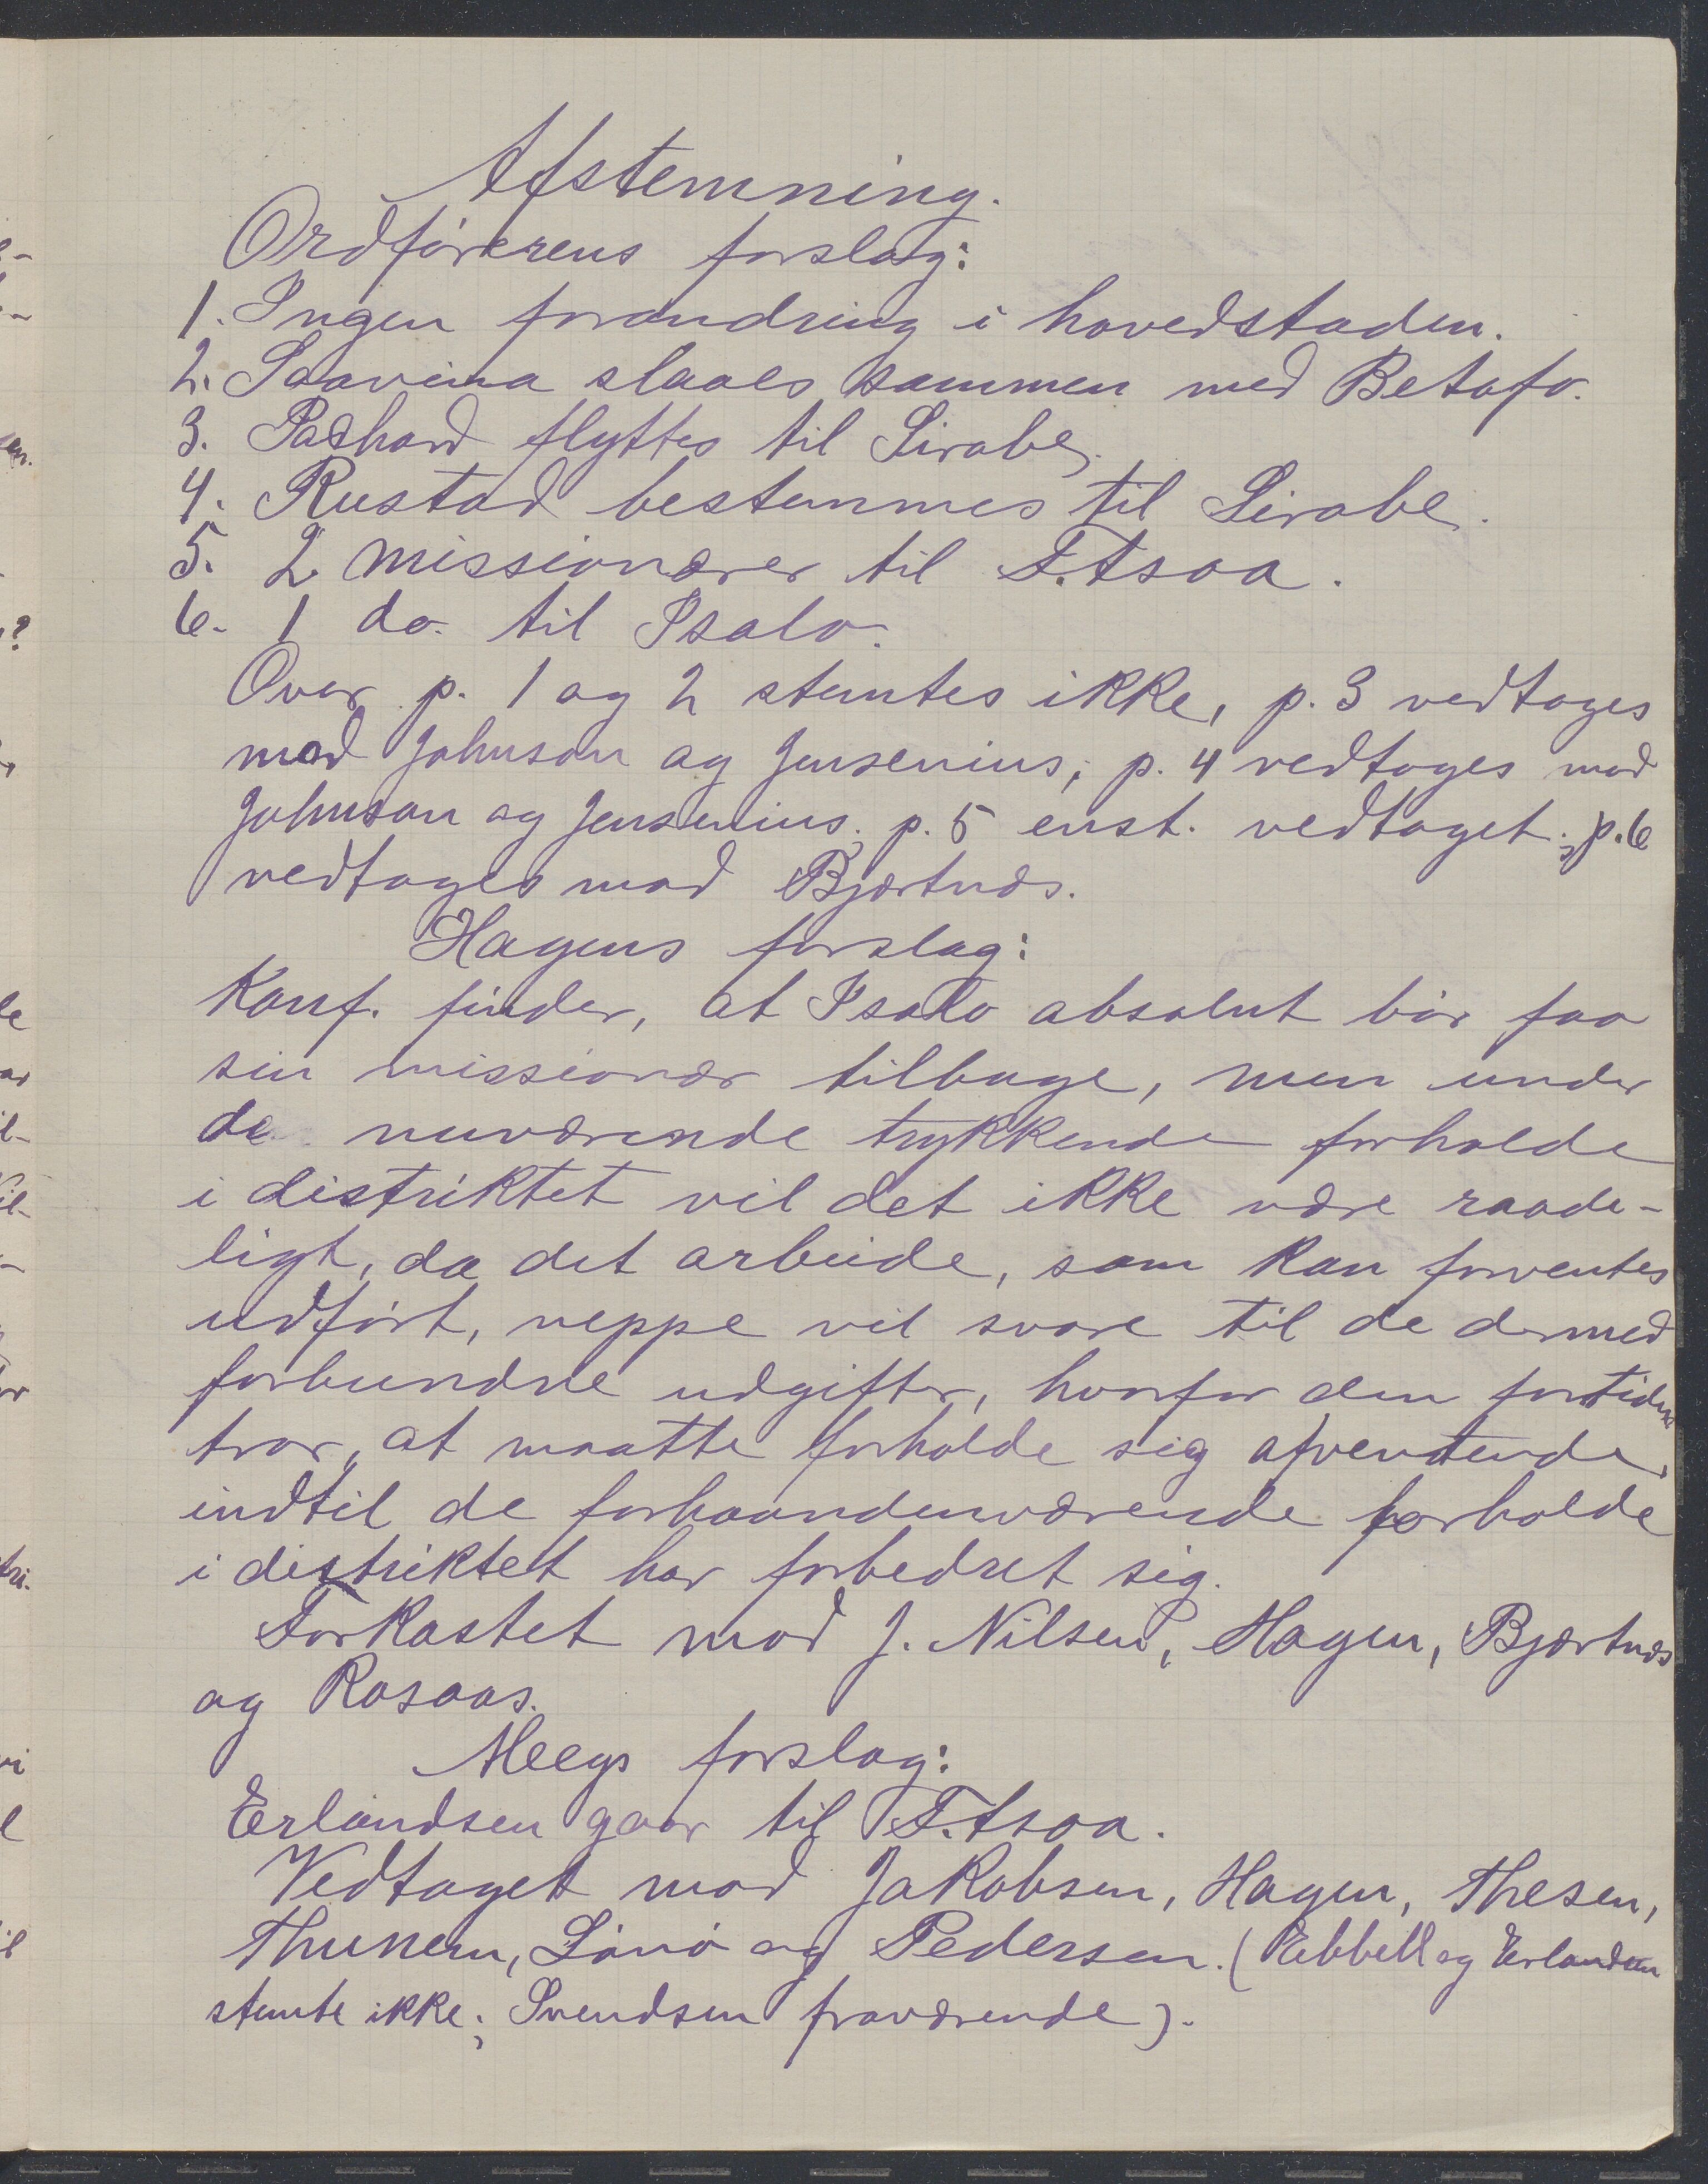 Afstemning.
Ordförerens forslag:
1. Ingen forandring i hovedstaden.
2. Soavina slaaes sammen med Betafo.
3. flyttes til Sirabe.
4. Rustad bestemmes til Sirabe.
5. 2 missionærer til F.tsoa.
6. 1 do. til Isalo.
Over p. 1 og 2 stemtes ikke, p. 3 vedtoges
mod Johnson og Jensenius; p. 4 vedtoges mod
Johnson og Jensenius; p. 5 enst. vedtaget; p. 6
vedtoges mod Bjærtnæs.
Hagens forslag:
Konf. finder, at Isalo absolut bör faa
sin missionær tilbage, men under
de nuværende trykkende forholde
i distriktet vil det ikke være raade-
ligt, da det arbeide, som kan forventes
udfört, neppe vil svare til de dermed
forbundne udgifter, hvorfor den fortiden
tror, at maatte forholde sig afventende,
indtil de forhaandenværende forholde
i distriktet har forbedret sig.
Forkastet mod J. Nilsen, Hagen, Bjærtnæs
og Rosaas.
Meegs forslag:
Erlandsen gaar til F.tsoa.
Vedtaget mod Jakobsen, Hagen, Thesen,
Thunem, Lönö og Pedersen. (Ribbell og Erlandsen
stemte ikke; Svendsen fraværende).